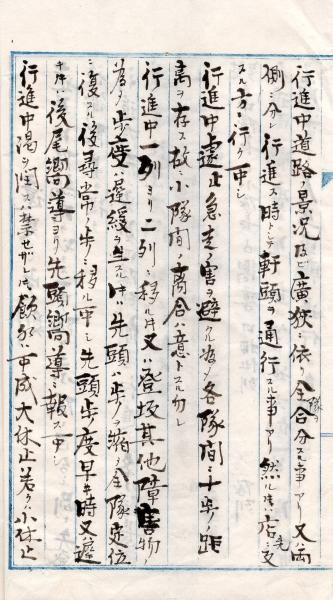 行進中道路ノ景況及ヒ廣狭ニ依リ全隊合分スル事アリ又ハ両
側ニ分レ行進スル時トシテ軒頭ヲ通行スル事アリ然ルトキハ店先ニ支
スル方ニ行ク可シ
行進中遽止急走ノ害避クル為メ各隊間ニ十歩ノ距
离ヲ存ス故ニ小隊間ノ离合ハ意トスル勿レ
行進中一列ヨリ二列ニ移ル時又ハ登坂其他障害物ノ
為メ歩度ハ遅緩ヲ生スルトキハ先頭ハ歩ヲ縮メ全隊定位
ニ復スル後尋常ノ歩ニ移ル可シ先頭歩度早キ時又遅
キ時ハ後尾嚮導ヨリ先頭嚮導ニ報ズ可シ
行進中渇ヲ潤スハ禁セザレトモ飲水ハ可成大休止若クハ小休止